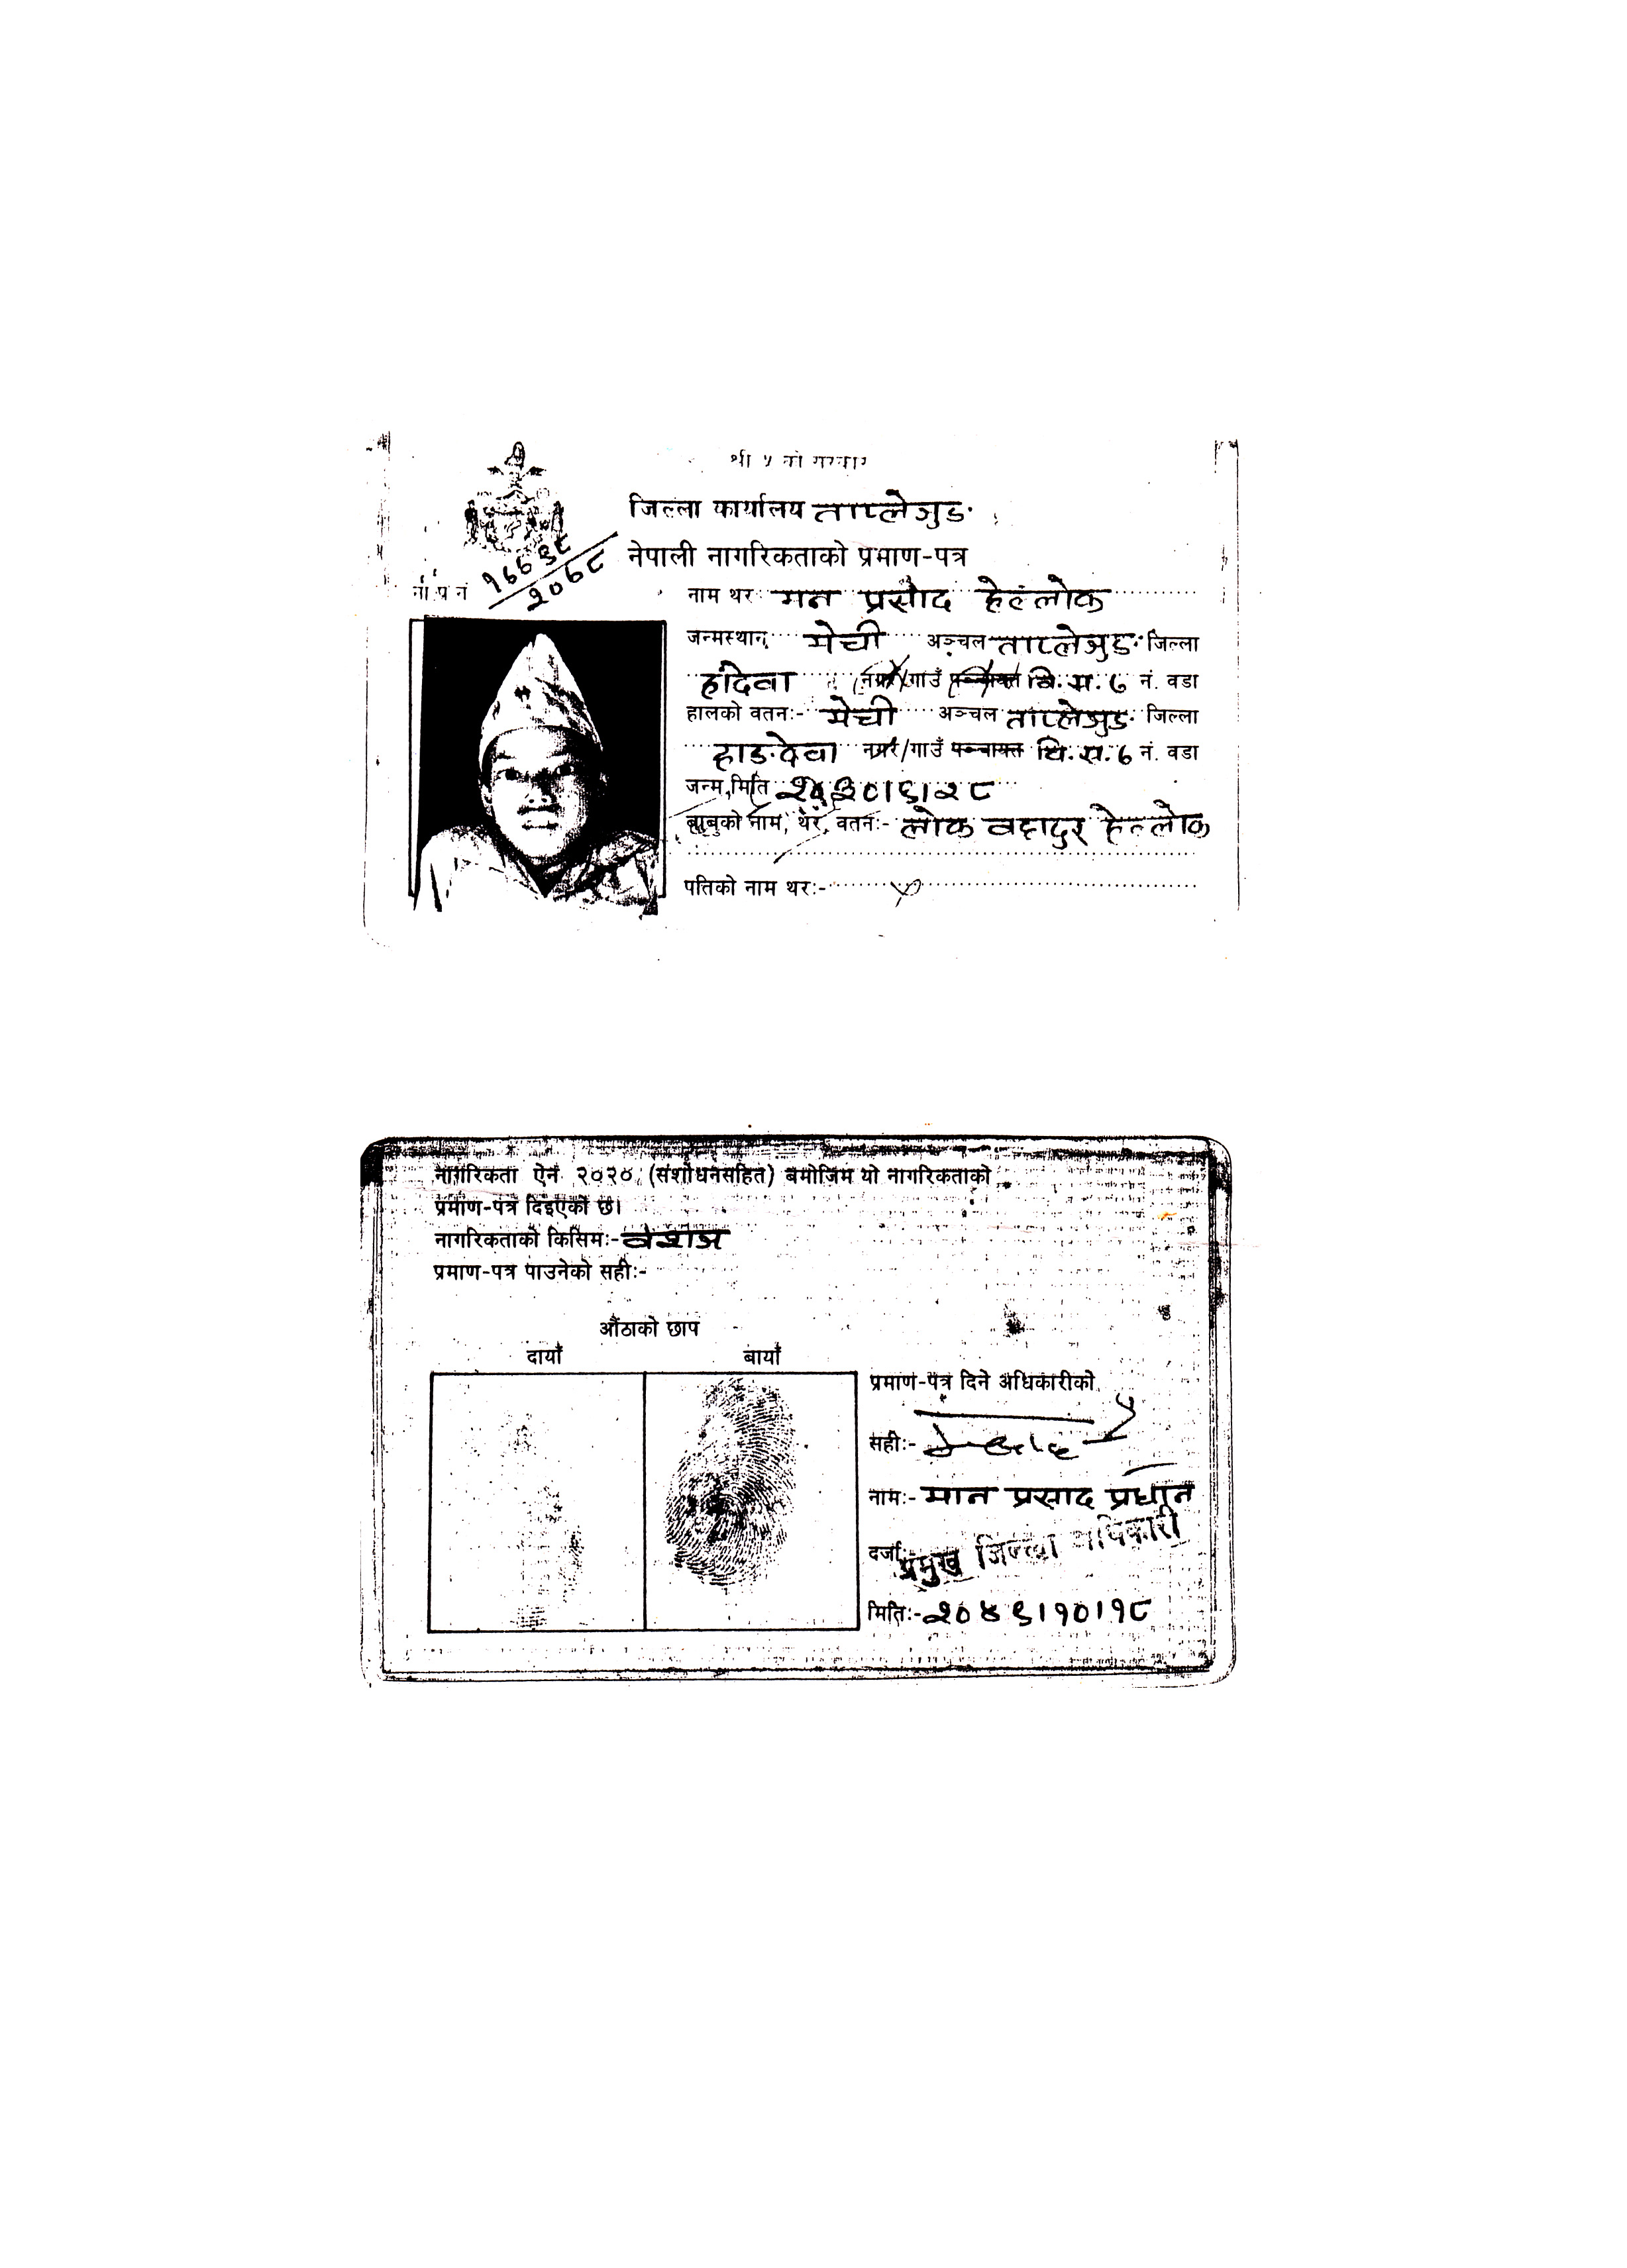 श्री ५ को सरकार
जिल्ला कार्यालय ताप्लेजुङ
नेपाली नागरिकताको प्रमाण-पत्र
ना.प्र.नं.
नाम थरः मन प्रसाद हेल्लोक
जन्मस्थानः मेची अञ्चल ताप्लेजुङ जिल्ला
हांदेवा नगर/गाउँ पञ्चायत वि.स. ७ नं. वडा
हालको वतनः- मेची अञ्चल ताप्लेजुङ जिल्ला
हाङदेवा नगर/गाउँ पञ्चायत वि.स. ७ नं. वडा
जन्म मिति
बाबुको नाम, थर, वतनः- लोक वहादुर हेल्लोक
पतिको नाम थरः-
नागरिकता ऐन २०२० (संशोधनसहित) बमोजिम यो नागरिकताको
प्रमाण-पत्र दिइएको छ।
नागरिकताको किसिमः- वंशज
प्रमाण-पत्र पाउनेको सहीः-
औंठाको छाप
दायाँ बायाँ
प्रमाण-पत्र दिने अधिकारीको
सहीः-
नामः- मान प्रसाद प्रधान
दर्जाः- प्रमुख जिल्ला अधिकारी
मितिः- २०४९।१०।१८